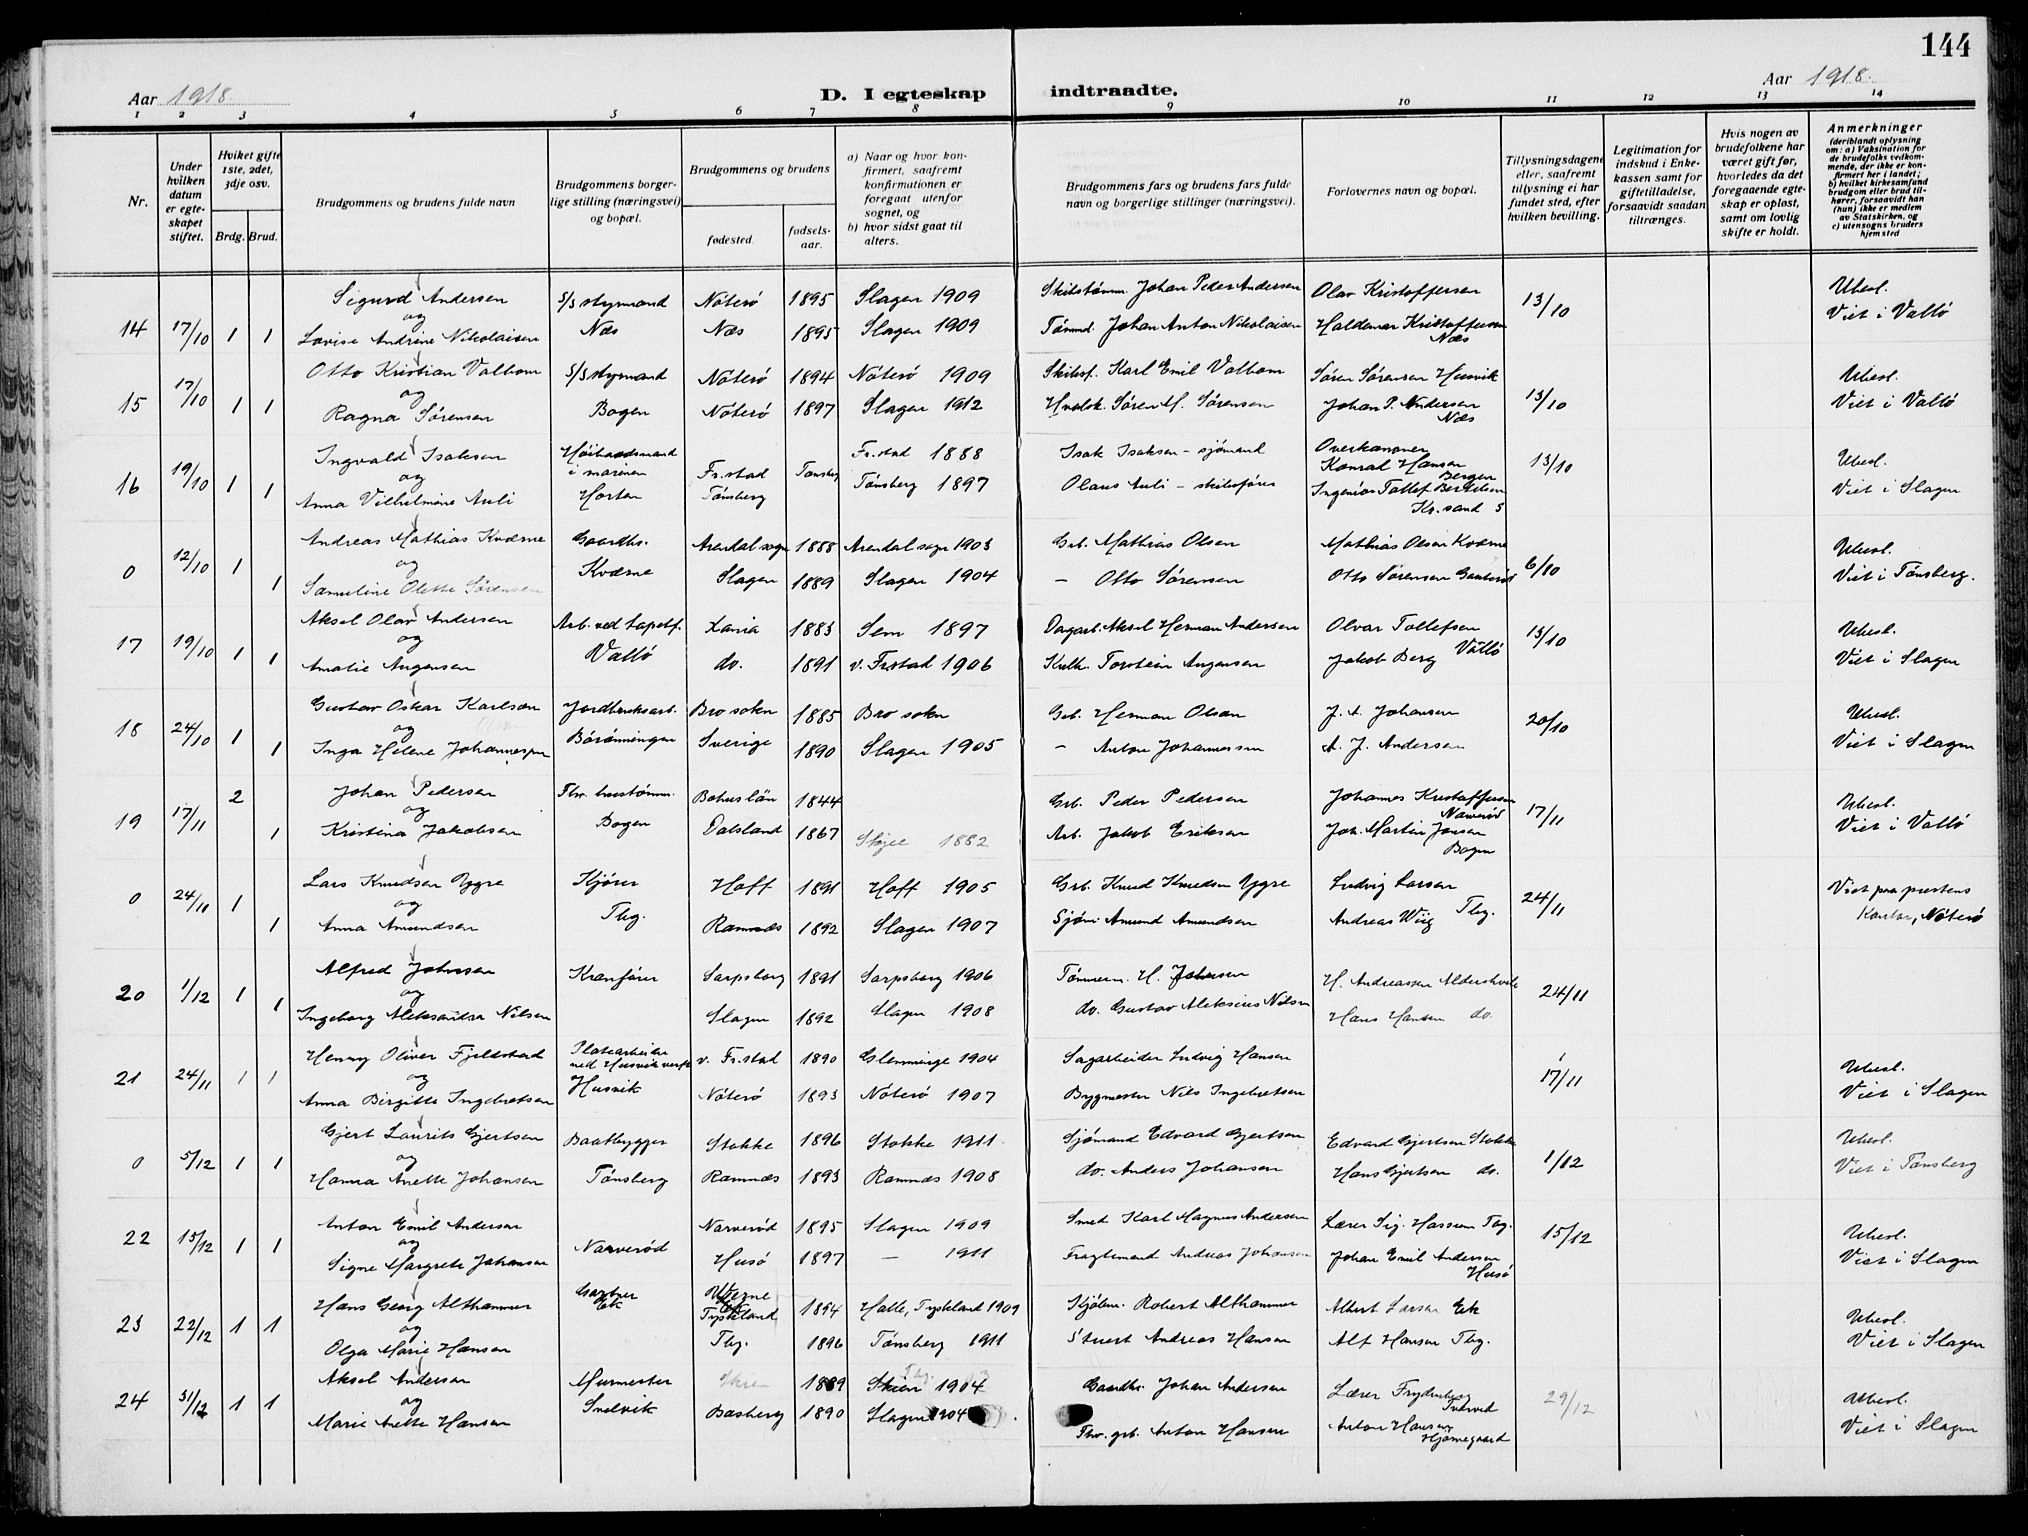 144
Aar 1918.
D. I egteskap indtraadte.
Aar 1918.
1 2 3 4 5 6 7 8 9 10 11 12 13 14
Nr.
Under hvilken datum er egteskapet stiftet.
Hviket gifte 1ste, 2det, 3dje osv.
Brdg. Brud.
Brudgommens og brudens fulde navn
Brudgommens borgerlige stilling (næringsvei) og bopæl.
Brudgommens og brudens
fødested. fødselsaar.
a) Naar og hvor konfirmert, saafremt konfirmationen er foregaat utenfor sognet, og
b) hvor sidst gaat til alters.
Brudgommens fars og brudens fars fulde navn og borgerlige stillinger (næringsvei).
Forlovernes navn og bopæl.
Tillysningsdagene eller, saafremt tillysning ei har fundet sted, efter hvilken bevilling.
Legitimation for indskud i Enkekassen samt for giftetilladelse, forsaavidt saadan tiltrænges.
Hvis nogen av brudefolkene har været gift før, hvorledes da det foregaaende egteskap er opløst, samt om lovlig skifte er holdt.
Anmerkninger (deriblandt oplysning om: a) Vaksination for de brudefolks vedkommende, der ikke er konfirmert her i landet; b) hvilket kirkesamfund brudgom eller brud tilhører, forsaavidt han (hun) ikke er medlem av Statskirken, og c) utensogns bruders hjemsted
Sigurd Andersen S/S styrmand Nöterö 1895 Slagen 1909 Johan Peder Andersen Olav Kristoffersen 13/10 Ubesl.
14 17/10 1 1 og
Lovise Andrine Nikolaisen Næs Næs 1895 Slagen 1909 Tömmd. Johan Anton Nikolaisen Haldemar Kristoffersen Næs Viet i Vallö
Otto Kristian Valbom S/S styrmand Nöterö 1894 Nöterö 1909 Skibsf. Karl Emil Valbom Sören Sörensen Husvik Ubesl.
15 17/10 1 1 og 13/10
Ragna Sörensen Bogen Nöterö 1897 Slagen 1912 Hvalsk. Sören M. Sörensen Johan P. Andersen Næs Viet i Vallö
Ingvald Isaksen Höibaadsmand i marinen Fr.stad Fr.stad 1888 Isak Isaksen - sjömand Overkanoner Konrad Hansen Bergen 13/10 Ubesl.
16 19/10 1 1 og
Anna Vilhelmine Auli Horten Tönsberg Tönsberg 1897 Olaus Auli - skibsförer Ingeniör Tollef Bertelsen Kr.sand S Viet i Slagen
Andreas Mathias Kværne Gaardbr. Arendal sogn 1888 Arendal sogn 1903 Grb. Mathias Olsen Mathias Olsen Kværne Ubesl.
0 12/10 1 1 og 6/10
Samuline Olette Sörensen Kværne Slagen 1889 Slagen 1904 - Otto Sörensen Otto Sörensen Viet i Tönsberg.
Aksel Olav Andersen Arb. ved tapetf. Xania 1883 Sem 1897 Dagarb. Aksel Herman Andersen Olvar Tollefsen Ubesl.
17 19/10 1 1 og 13/10
Amalie Angensen Vallö do. 1891 v. Fr.stad 1906 Torstein Angensen Jakob Berg Vallö Viet i Slagen
Gustav Oskar Karlsen Jordbruksarb. Bro sokn 1885 Bro sokn Grb. Herman Olsen J. A. Johansen Ubesl.
18 24/10 1 1 og 20/10
Inga Helene Johannessen Sverige 1890 Slagen 1905 - Anton Johannessen A. J. Andersen Viet i Slagen
Johan Pedersen Fhv. hustömm. Bohuslän 1844 Grb. Peder Pedersen Johannes Kristoffersen Narverød Ubesl.
19 17/11 2 1 og 17/11
Kristina Jakobsen Bogen Dalsland 1867 1882 Arb. Jakob Eriksen Joh. Martin Jensen Bogen Viet i Vallö
Lars Knudsen Bygre Kjörer Hoff 1891 Hoff 1905 Grb. Knud Knudsen Bygre Ludvig Larsen Viet paa prestens
0 24/11 1 1 og 24/11
Anna Amundsen Tbg. Ramnæs 1892 Slagen 1907 Sjöm. Amund Amundsen Andreas Wiig Tbg. Kontor, Nöterö
Alfred Johnsen Kranförer Sarpsborg 1891 Sarpsborg 1906 Tömmerm. H. Johnsen H. Andreassen Aldershvile
20 1/12 1 1 og 24/11
Ingeborg Aleksandra Nilsen Slagen 1892 Slagen 1908 do. Gustav Aleksius Nilsen Hans Hansen do.
Henry Oliver Fjeldstad Platearbeider ved Husvik verft v. Fr.stad 1890 Glemminge 1904 Sagarbeider Ludvig Hansen Ubesl.
21 24/11 1 1 og 17/11
Anna Birgitte Ingebretsen Husvik Nöterö 1893 Nöterö 1907 Bygmester Nils Ingebretsen Viet i Slagen
Gjert Laurits Gjertsen Baatbygger Stokke 1896 Stokke 1911. Sjömand Edvard Gjertsen Edvard Gjertsen Stokke Ubesl.
0 5/12 1 1 og 1/12
Hanna Anette Johansen Tönsberg Ramnæs 1893 Ramnæs 1908 do. Anders Johansen Hans Gjertsen do. Viet i Tönsberg
Anton Emil Andersen Narveröd 1895 Slagen 1909 Smed Karl Magnus Andersen Lærer Sig. Hassum Tbg. Ubesl.
22 15/12 1 1 og Narveröd 15/12
Signe Margrete Johansen Husö 1897 - 1911 Fragtemand Andreas Johansen Johan Emil Andersen Husö Viet i Slagen
Hans Georg Althammer Gartner Ek Tyskland 1894 Halle, Tyskland 1909 Robert Althammer Albert Larsen Ek Ubesl.
23 22/12 1 1 og
Olga Marie Hansen Tbg. 1896 Tönsberg 1911 Stuert Andreas Hansen Alf Hansen Tbg. Viet i Slagen
Aksel Andersen Murmester 1889 Skien 1904 Gaardbr. Johan Andersen Lærer Ubesl.
24 31/12 1 1 og 29/12
Marie Anette Hansen Svelvik Basberg 1890 Slagen 1904 Fhv. grb. Anton Hansen Anton Hansen Hjömegaard Viet i Slagen